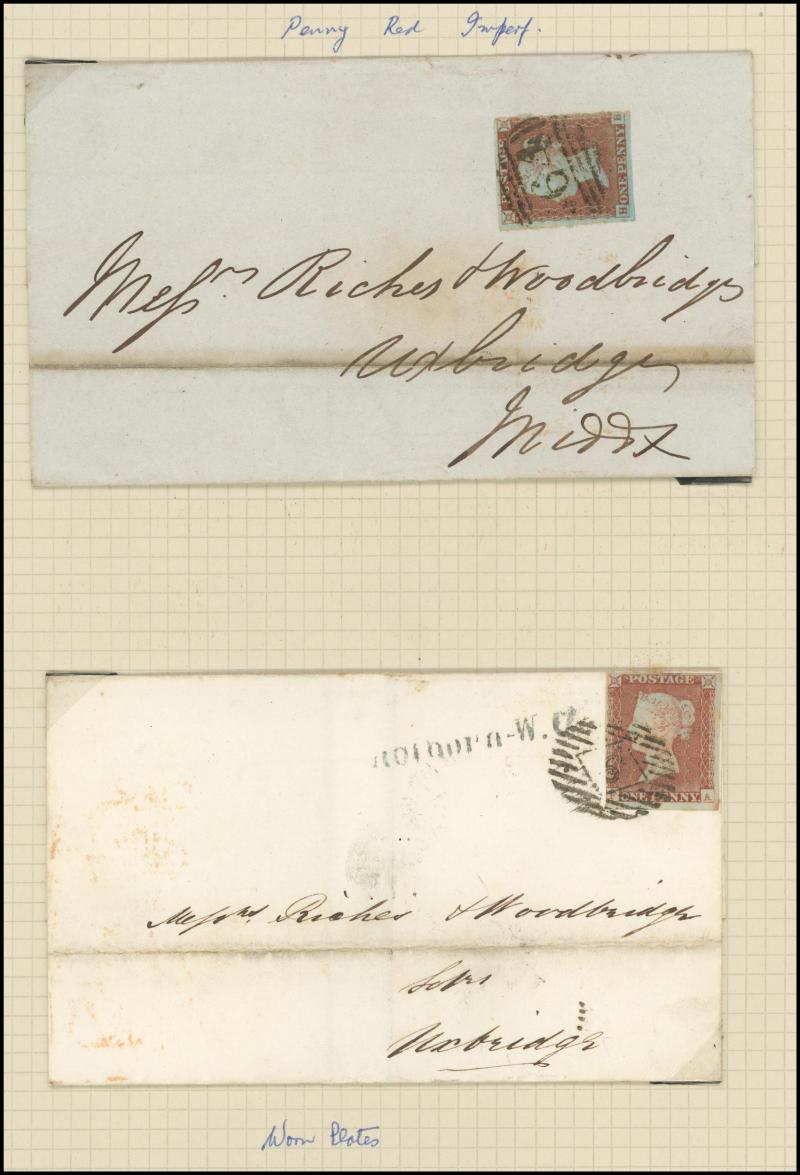 Penny Red Imperf.
POSTAGE
ONE PENNY
H
Messrs. Riches & Woodbridge
Uxbridge
Middx
POSTAGE
Holborn-W.O
ONE PENNY A
Messrs Riches & Woodbridge
Solrs
Uxbridge
Worn Plates